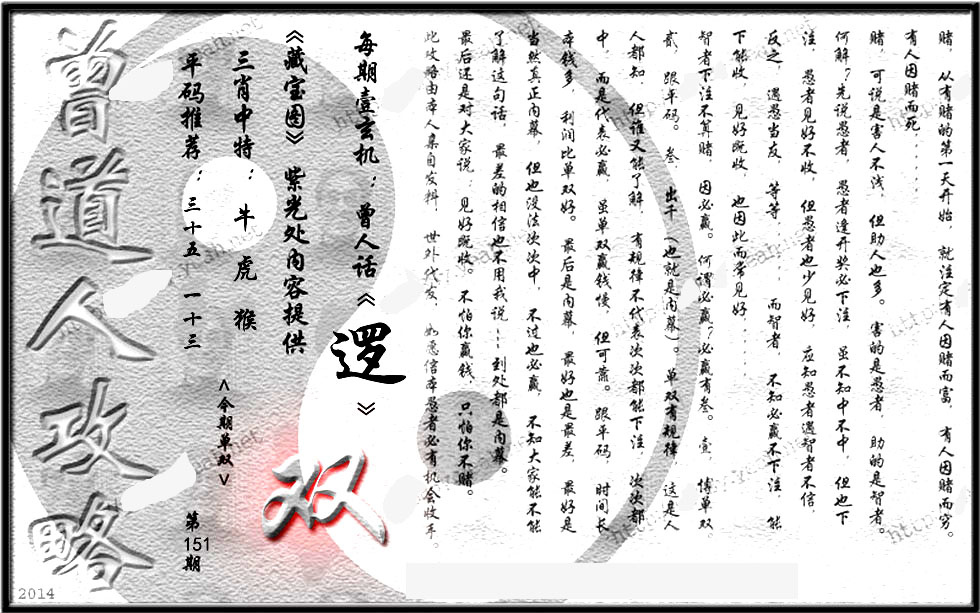 赌，从有赌的第一天开始，就注定有人因赌而富，有人因赌而穷。
有人因赌而死.........
赌，可说是害人不浅，但助人也多。害的是愚者，助的是智者。
何解？先说愚者，愚者逢开奖必下注，虽不知中不中，但也下
注，愚者见好不收，但愚者也少见好，应知愚者遇智者不信，
反之，遇愚当友，等等......，而智者，不知必赢不下注，能
下能收，见好既收，也因此而常见好......
智者下注不算赌，因必赢。何谓必赢？必赢有叁。壹，博单双。
贰，跟平码。叁，出千（也就是内幕）。单双有规律，这是人
人都知，但谁又能了解，有规律不代表次次都能下注，次次都
中，而是代表必赢，虽单双赢钱慢，但可靠。跟平码，时间长
本钱多，利润比单双好。最后是内幕，最好也是最差，最好是
当然真正内幕，但也没法次次中，不过也必赢，不知大家能不能
了解这句话，最差的相信也不用我说...到处都是内幕。
最后还是对大家说：见好既收。不怕你赢钱，只怕你不赌。
此攻略由本人亲自发料，世外代友，如愿信本愚者必有机会收手。
每期壹玄机：曾人话《逻》
《藏宝图》紫光处内容提供
三肖中特：牛 虎 猴
平码推荐：三十五 一十三
<今期单双>
双
第151期
曾道人攻略
2014